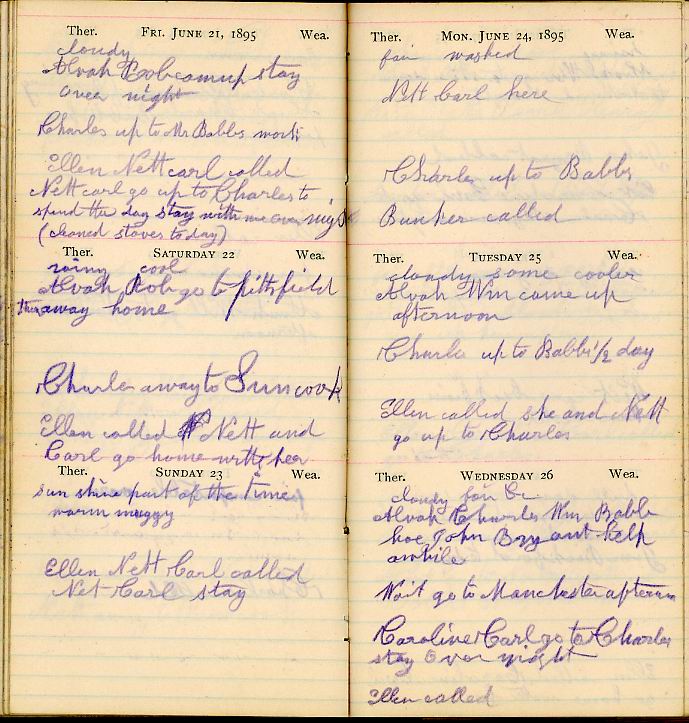 Ther. FRI. JUNE 21, 1895 Wea.
cloudy
Alvah Rob come up stay
over night
Charles up to Mr Babbs work
Ellen Nett carl called
Nett carl go up to Charles to
spend the day stay with me over night
(cleaned stoves to day)
Ther. SATURDAY 22 Wea.
rainy cool
Alvah Rob go to pittsfield
then away home
Charles away to Suncook
Ellen called Nett and
Carl go home with her
Ther. SUNDAY 23 Wea.
sun shine part of the time
warm muggy
Ellen Nett Carl called
Net Carl stay
Ther. MON. JUNE 24, 1895 Wea.
fair washed
Nett Carl here
Charles up to Babbs
Bunker called
Ther. TUESDAY 25 Wea.
cloudy some cooler
Alvah Wm came up
afternoon
Charles up to Babbs 1/2 day
Ellen called she and Nett
go up to Charles
Ther. WEDNESDAY 26 Wea.
cloudy fair
Alvah Charles Wm Babb
hoe John help
awhile
Wait go to Manchester afternoon
Caroline Carl go to Charles
stay over night
Ellen called